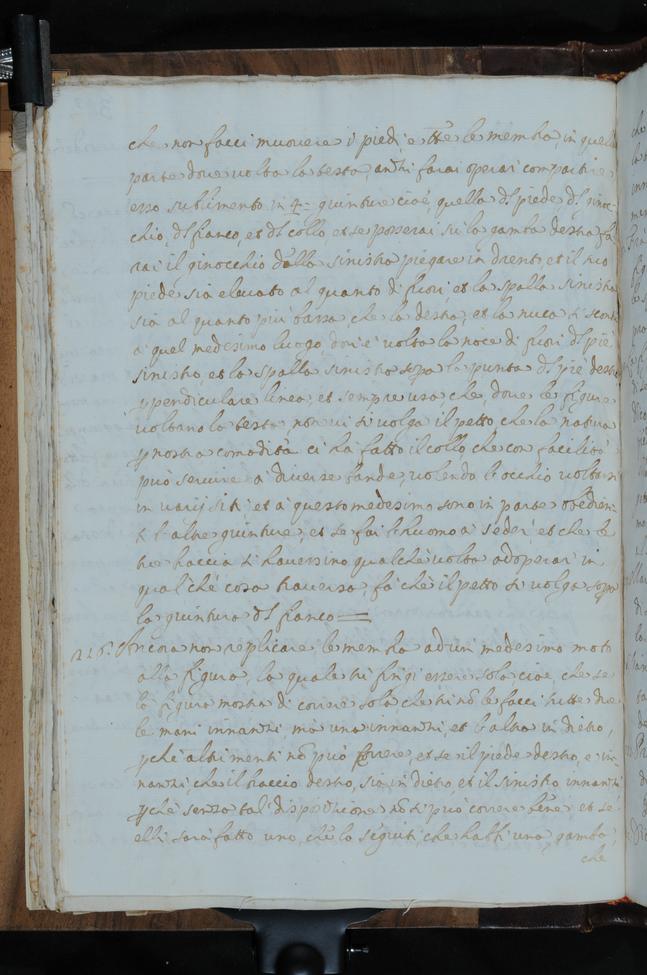 che non facci muovere i piedi, e tte le membra, in quella
parte dove volta la testa anzi farai operar compartire
esso sublimento in 4= giunture cioè, quella dl piede dl ginoc-
chio, dl fianco, et dl collo et se poserai su la gamba destra fa
rai il ginocchio della sinistra piegare in drento, et il suo
piede sia elevato al quanto di fuori et la spalla sinistra
sia al quanto più bassa, che la destra, et la nuca si scontri
a quel medesimo luogo, dov'è volta la noce di fuori dl piè
sinistro, et la spalla sinistra sopa la punta dl piè destro
p pendiculare linea; et sempre usa che, dove le figure
voltano la testa non vi si volga il petto che la natura
p nostra comodità ci ha fatto il collo che con facilità
può servire a diverse bande, volendo l'occhio voltarsi
in varij siti et a questo medesimo sono in parte obedien
ti l'altre giunture, et se fai l'huomo a seder' et che le
sue braccia si havessino qualche volta adoperar in
qual'che cosa traversa, fa chè il petto si volga sopa
la giuntura dl fianco =
Ancora non replicare le membra ad un medesimo moto
alla figura, la quale tu fingi essere sola cioè, che se
la figura mostra di correre sola che tu nō le facci tutte due
le mani innanzi ma una innanzi, et l'altra in dietro,
pchè altrimenti nō può correre, et se il piede destro, è in
nanzi, che il braccio destro, sia in dietro et il sinistro innanzi
pchè senza tal dispositione nō si può correre bene et se
elli sarà fatto uno, chē lo seguiti che habbi una gamba
chè